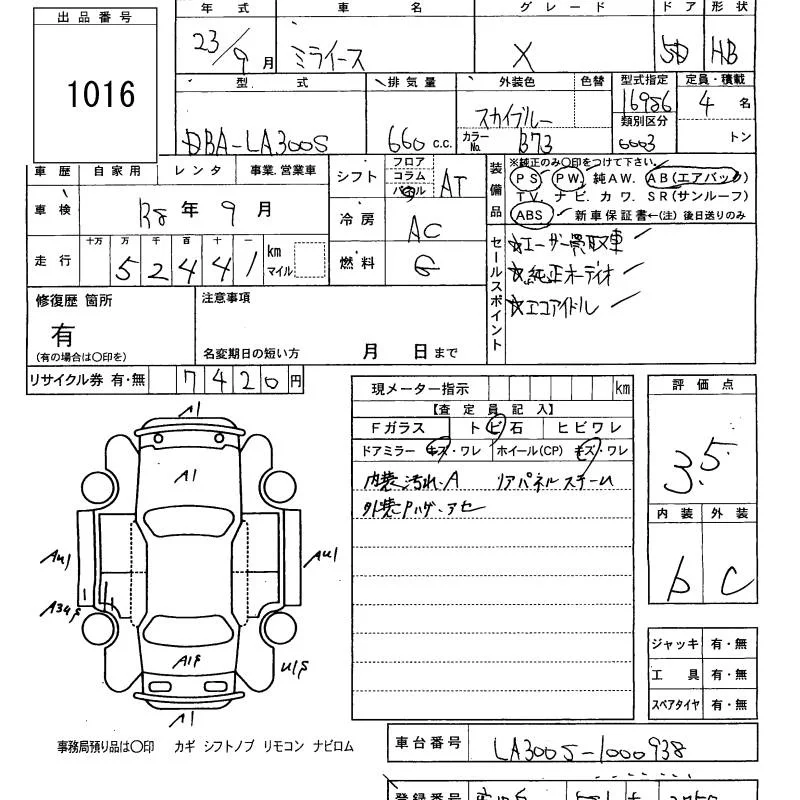 出品番号
1016
年式 車名 グレード ドア 形状
23/9月 ミライース X 5D HB
型式 排気量 外装色 色替 型式指定 定員・積載
DBA-LA300S 660 c.c. スカイブルー 16986 4名
カラーNo. B73 類別区分 6003 トン
車歴 自家用 レンタ 事業.営業車
車検 R8年9月
走行 十万 万 千 百 十 一 km マイル
52441
シフト フロア コラム パネル AT
冷房 AC
燃料 G
装備品 ※純正のみ〇印をつけて下さい.
PS PW. 純AW. AB(エアバック)
TV. ナビ. カワ. SR(サンルーフ)
ABS 新車保証書←(注) 後日送りのみ
セールスポイント
☆ユーザー買取車
☆純正オーディオ
☆エコアイドル
修復歴 箇所
有
(有の場合は〇印を)
注意事項
名変期日の短い方 月 日まで
リサイクル券 有・無 7420円
現メーター指示 km
【査定員記入】
Fガラス トビ石 ヒビワレ
ドアミラー キズ・ワレ ホイール(CP) キズ・ワレ
内装汚れ.A リアパネルスチーム
外装Pハゲ.アセ
評価点
3.5
内装 外装
b C
A1
A1
AU1
AU1
A1
ジャッキ 有・無
工具 有・無
スペアタイヤ 有・無
事務局預り品は〇印 カギ シフトノブ リモコン ナビロム
車台番号 LA300S-1000938
登録番号